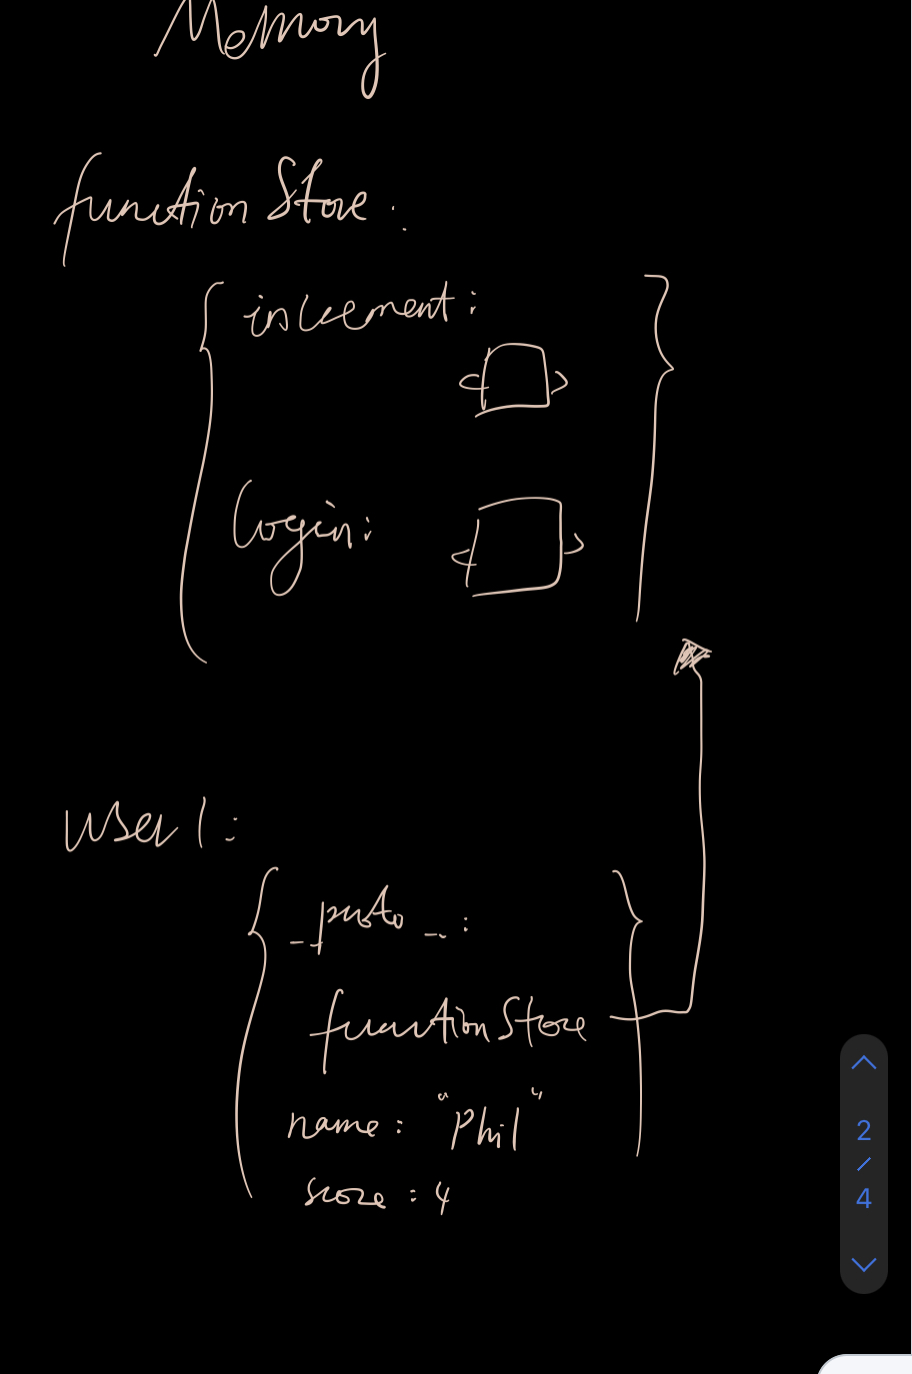 Memory
functionStore:
{ increment: }
login:
user1:
{ __proto__: }
functionStore
name: "Phil"
score: 4
2
/
4